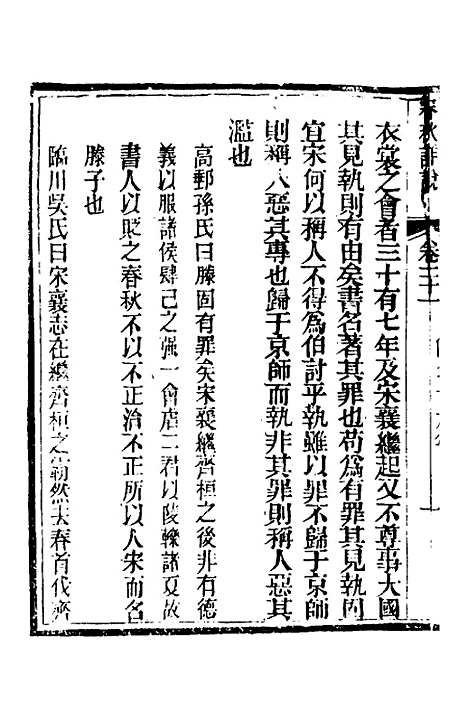 春秋詳說 卷二十
衣裳之會者三十有七年及宋襄繼起又不尊事大國
其見執則有由矣書名著其罪也苟爲有罪其見執固
宜宋何以稱人不得爲伯討乎執雖以罪不歸于京師
則稱人惡其專也歸于京師而執非其罪則稱人惡其
濫也
高郵孫氏曰滕固有罪矣宋襄繼齊桓之後非有德
義以服諸侯肆己之强一會虐二君以陵轢諸夏故
書人以貶之春秋不以不正治不正所以人宋而名
滕子也
臨川吳氏曰宋襄志在繼齊桓之霸然去春首伐齊